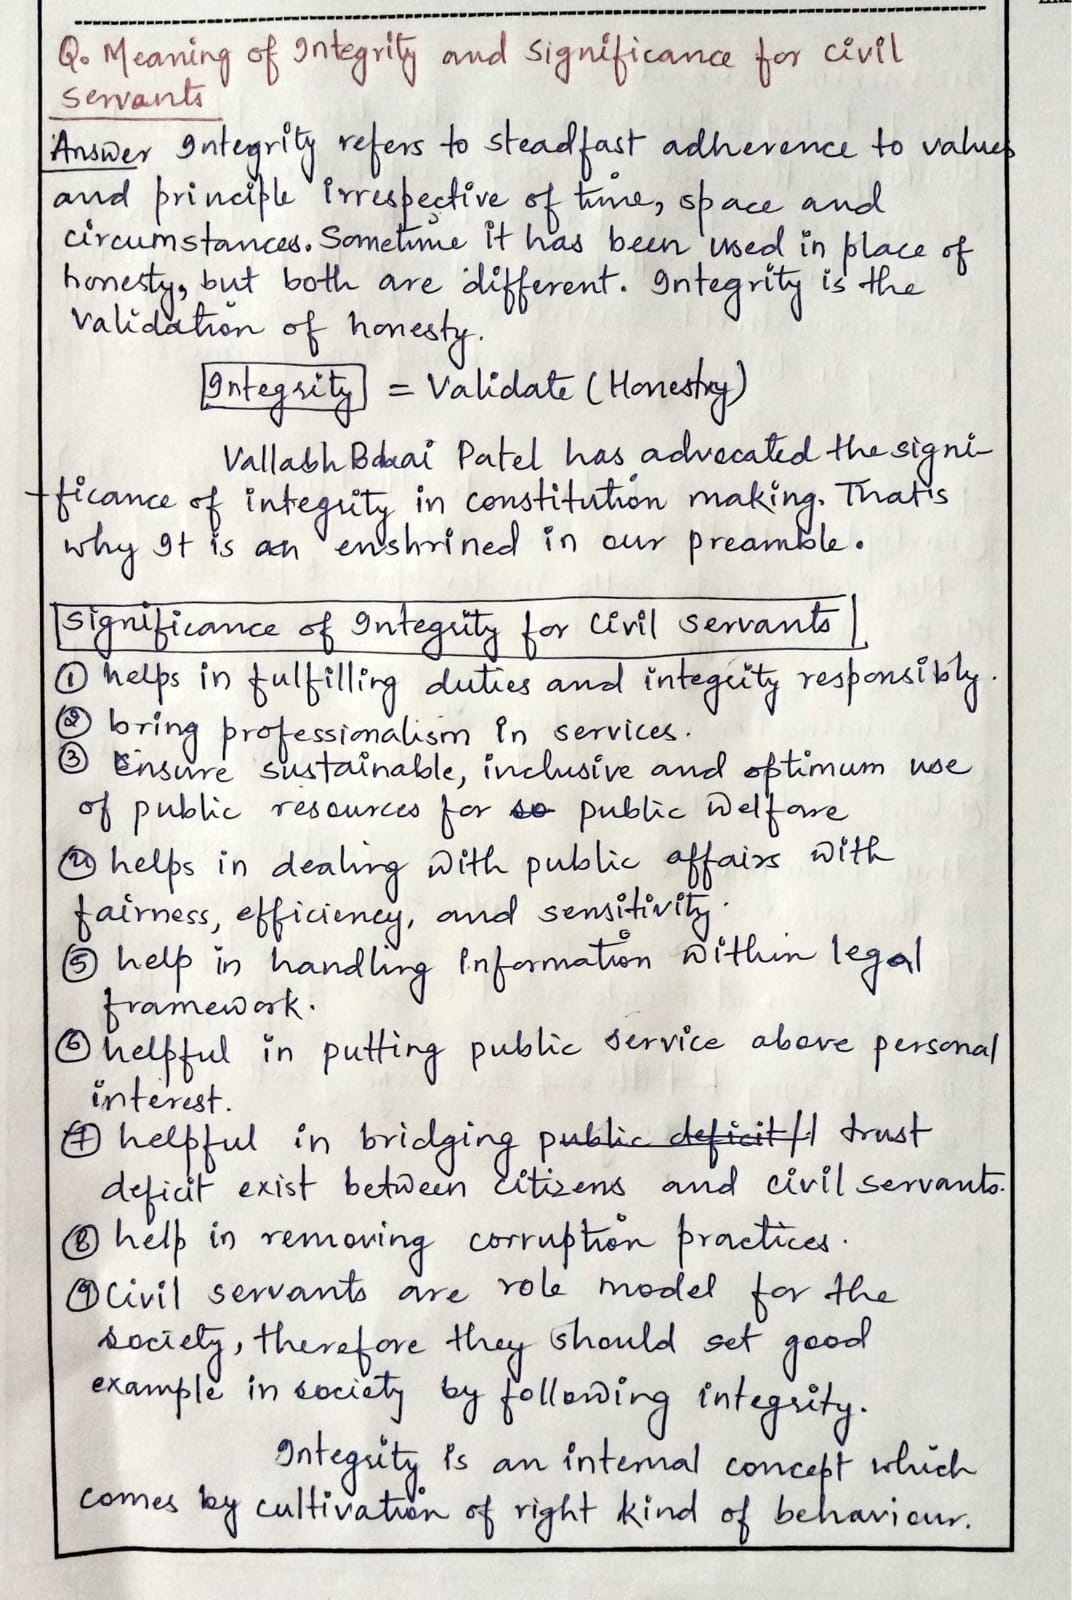 Q. Meaning of Integrity and significance for civil
servants
Answer Integrity refers to steadfast adherence to values
and principle irrespective of time, space and
circumstances. Sometime it has been used in place of
honesty, but both are different. Integrity is the
validation of honesty.
Integrity = Validate (Honestry)
Vallabh Bhai Patel has advocated the signi-
ficance of integrity in constitution making. That is
why It is an enshrined in our preamble.
Significance of Integrity for Civil servants
① helps in fulfilling duties and integrity responsibly.
② bring professionalism in services.
③ Ensure sustainable, inclusive and optimum use
of public resources for so public welfare
④ helps in dealing with public affairs with
fairness, efficiency, and sensitivity.
⑤ help in handling Information within legal
framework.
⑥ helpful in putting public service above personal
interest.
⑦ helpful in bridging public deficit trust
deficit exist between citizens and civil servants.
⑧ help in removing corruption practices.
⑨ Civil servants are role model for the
society, therefore they should set good
example in society by following integrity.
Integrity is an internal concept which
comes by cultivation of right kind of behaviour.